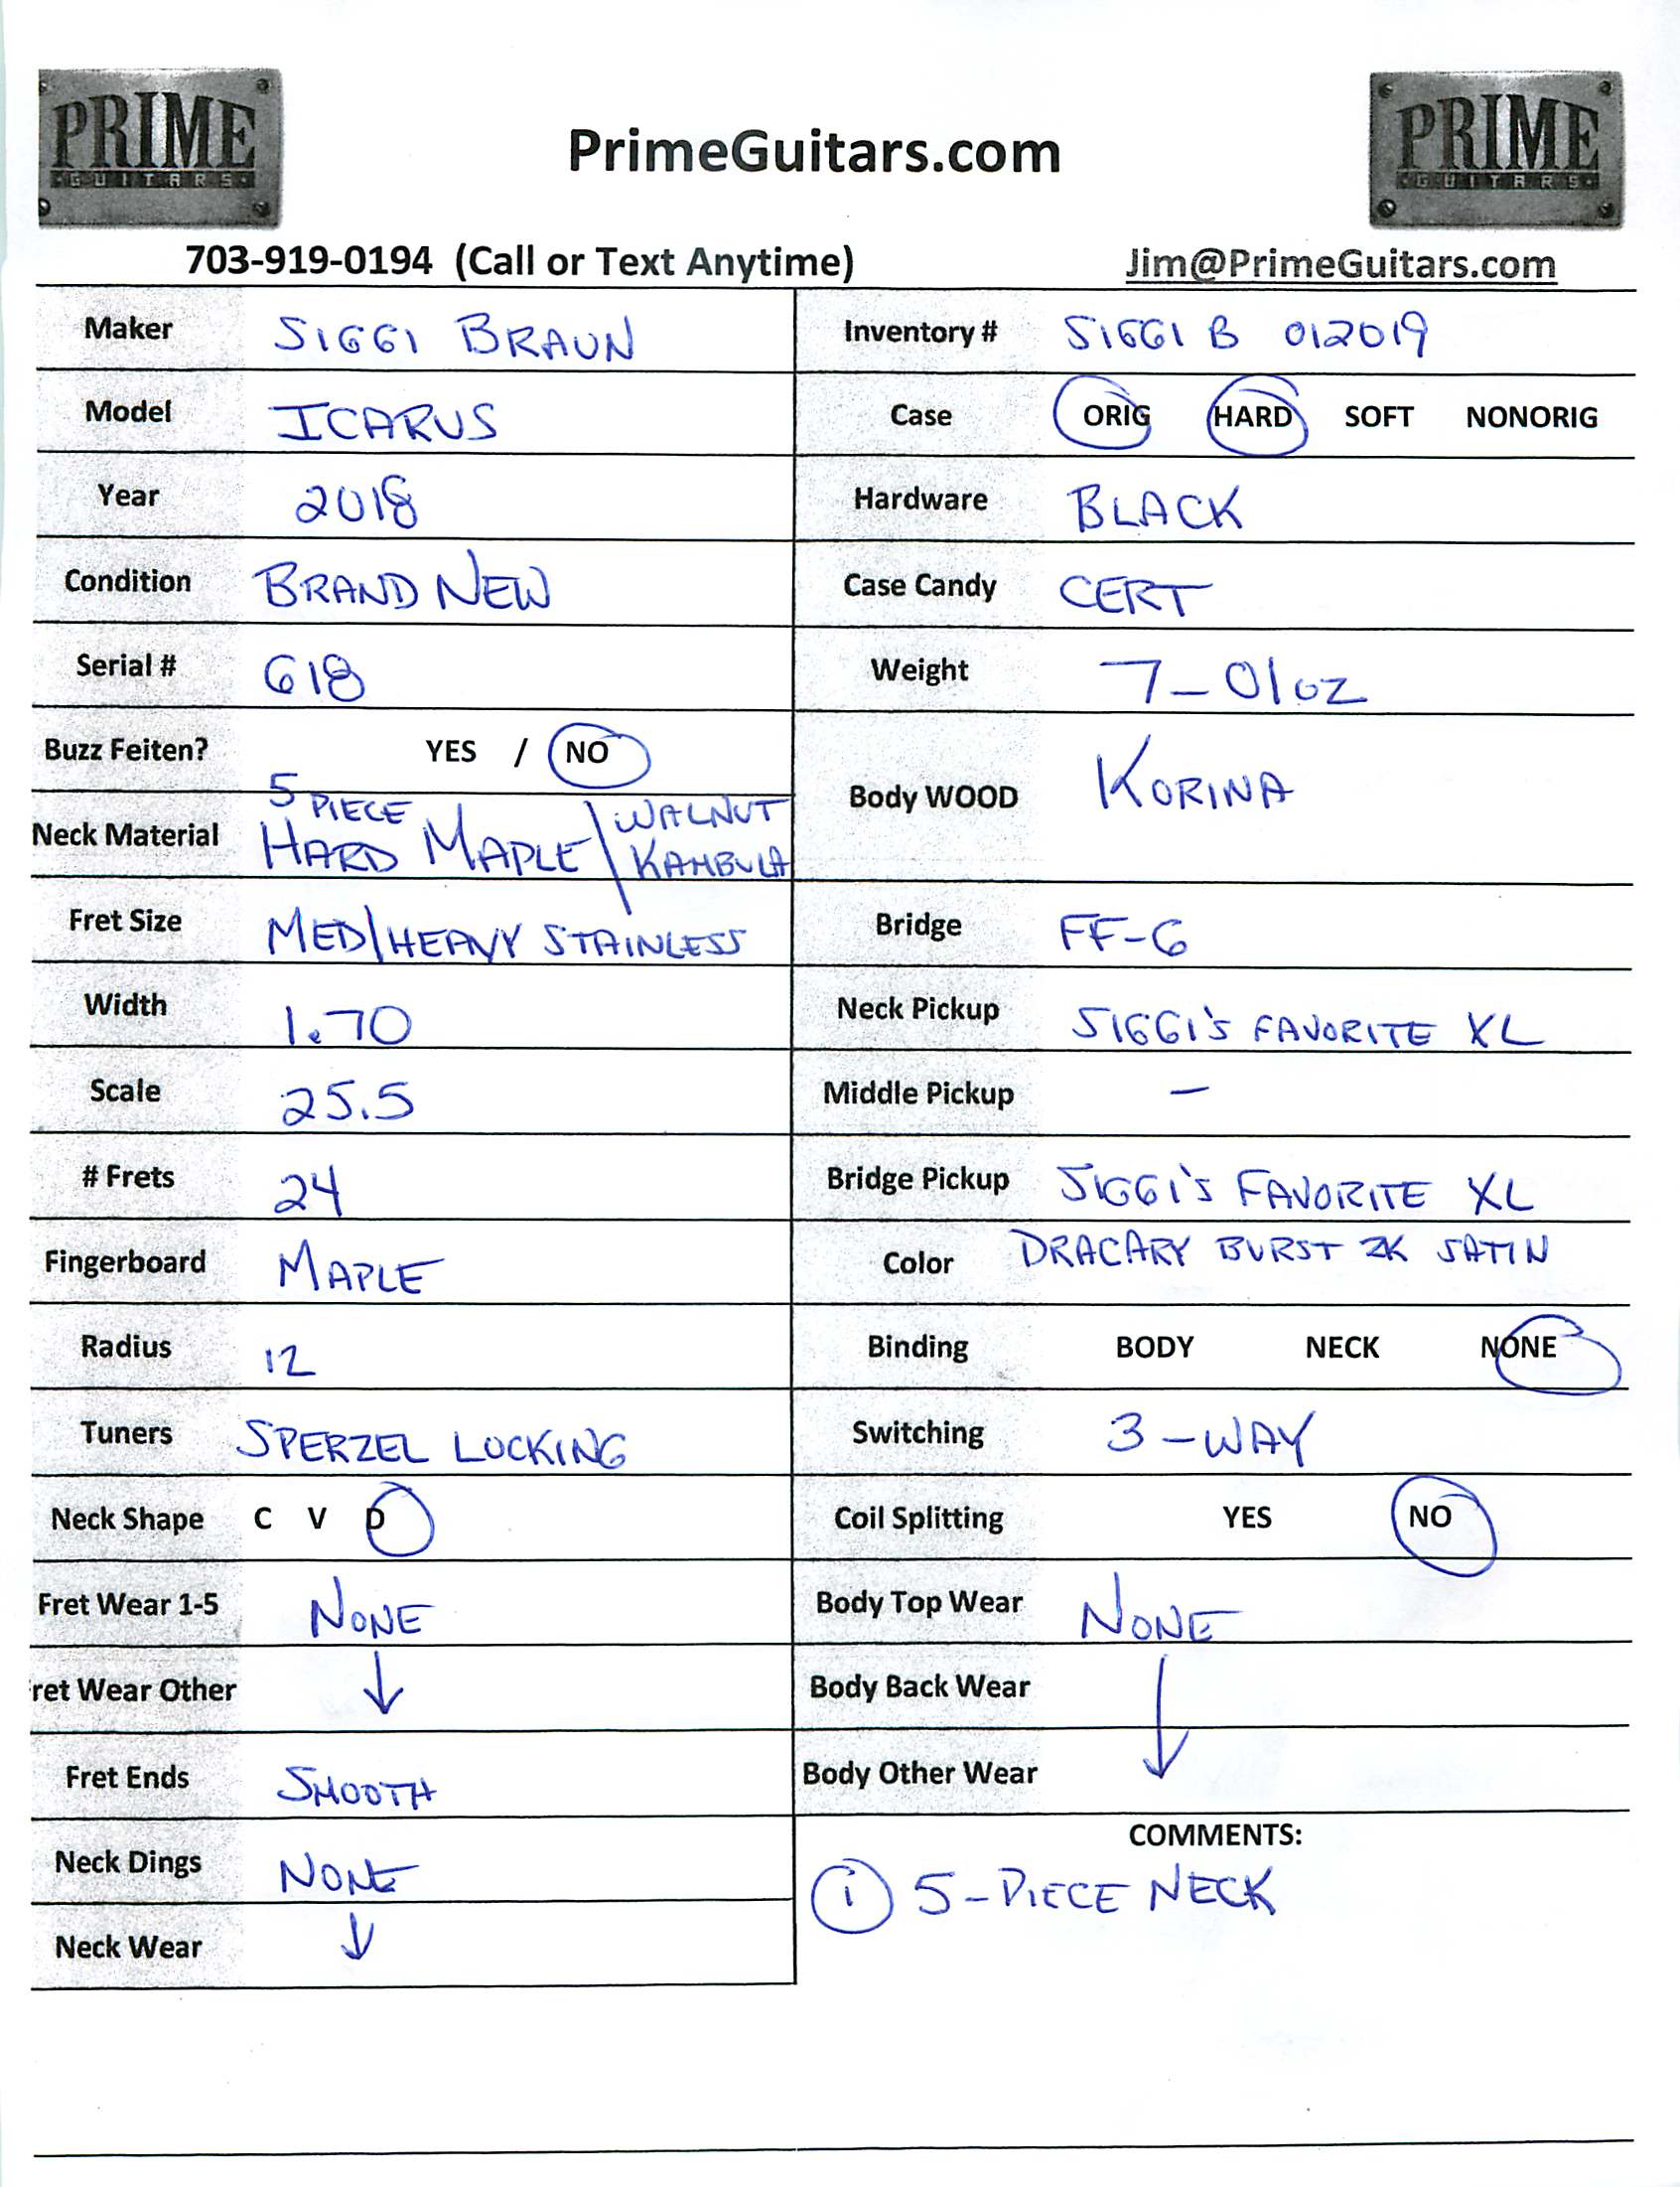 PRIME
GUITARS
PrimeGuitars.com
PRIME
GUITARS
703-919-0194 (Call or Text Anytime)
Jim@PrimeGuitars.com
Maker SIGGI BRAUN
Model ICARUS
Year 2018
Condition BRAND NEW
Serial # 618
Buzz Feiten? YES / NO
Neck Material 5 PIECE HARD MAPLE / WALNUT KAMBULA
Fret Size MED/HEAVY STAINLESS
Width 1.70
Scale 25.5
# Frets 24
Fingerboard MAPLE
Radius 12
Tuners SPERZEL LOCKING
Neck Shape C V D
Fret Wear 1-5 NONE
ret Wear Other ↓
Fret Ends SMOOTH
Neck Dings NONE
Neck Wear ↓
Inventory # SIGGI B 012019
Case ORIG HARD SOFT NONORIG
Hardware BLACK
Case Candy CERT
Weight 7-01oz
Body WOOD KORINA
Bridge FF-6
Neck Pickup SIGGI'S FAVORITE XL
Middle Pickup –
Bridge Pickup SIGGI'S FAVORITE XL
Color DRACARY BURST 2K SATIN
Binding BODY NECK NONE
Switching 3-WAY
Coil Splitting YES NO
Body Top Wear NONE
Body Back Wear
Body Other Wear ↓
COMMENTS:
① 5-PIECE NECK